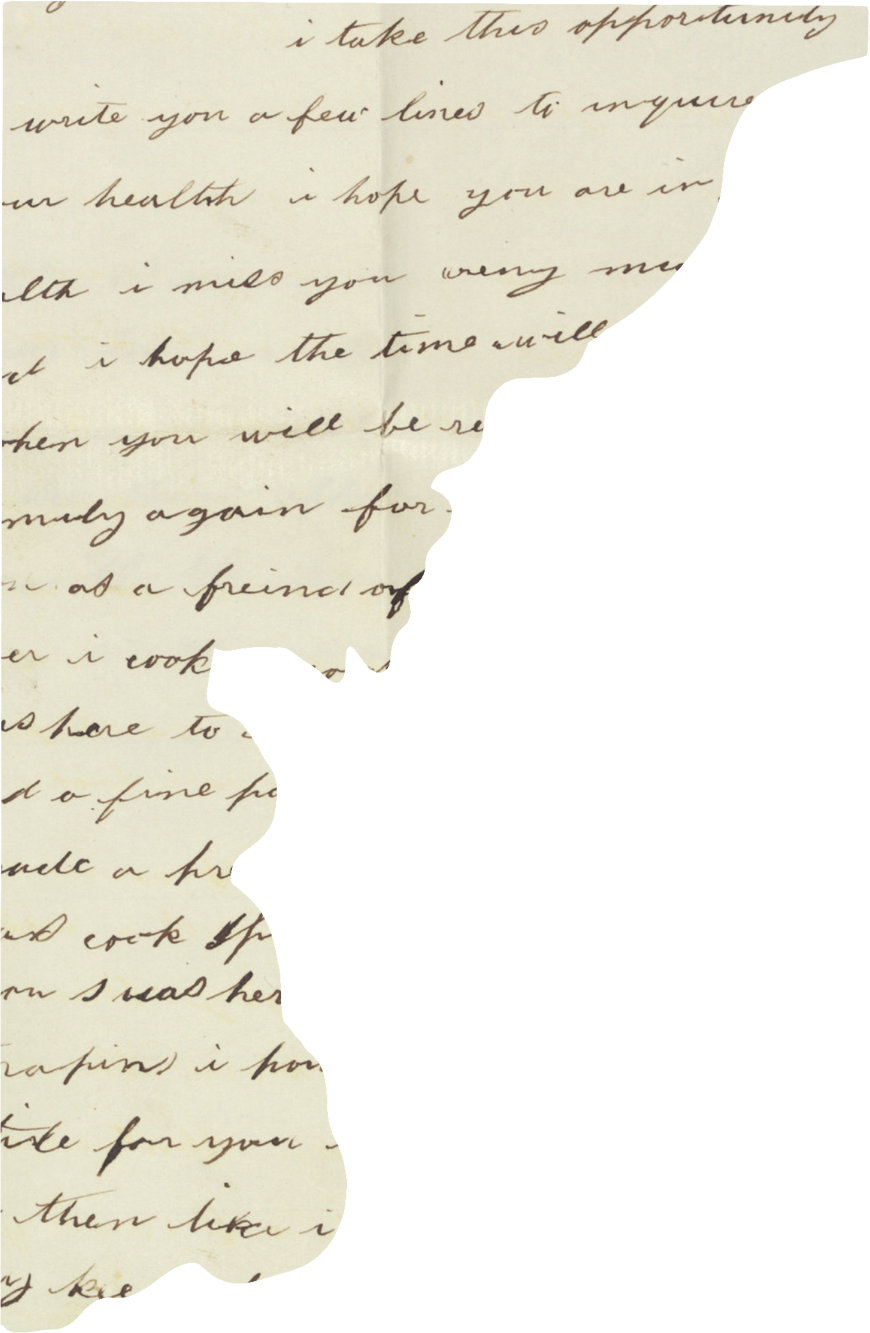 i take this opportunity
write you a few lines to inquire
ur health i hope you are in
alth i miss you veriny mu
i hope the time will
when you will be re
mily again for
as a freind of
er i cook
as here to
d a fine pa
made a pre
cook
was her
rapins i hou
for your
then like i
kee